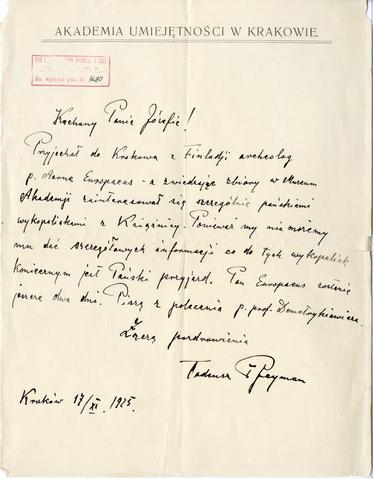 AKADEMIA UMIEJĘTNOŚCI W KRAKOWIE.
Kochany Panie Józefie!
Przyjechał do Krakowa z Finlandji archeolog
p. Aarne Europaeus - a zwiedzając zbiory w Muzeum
Akademji zainteresował się szczególnie pańskiemi
wykopaliskami z Księginic. Ponieważ my nie możemy
mu dać szczegółowych informacji co do tych wykopalisk
koniecznym jest Pański przyjazd. Pan Europaeus zostanie
jeszcze dwa dni. Piszę z polecenia p. prof. Demetrykiewicza.
Łączę pozdrowienia
Tadeusz Reyman
Kraków 17/XI. 1925.